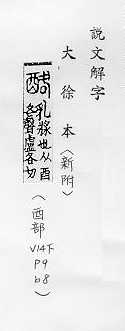 說文解字
大徐本〈新附〉
酪 乳漿也从酉
各聲盧各切
（酉部
V14下
P9
b8）